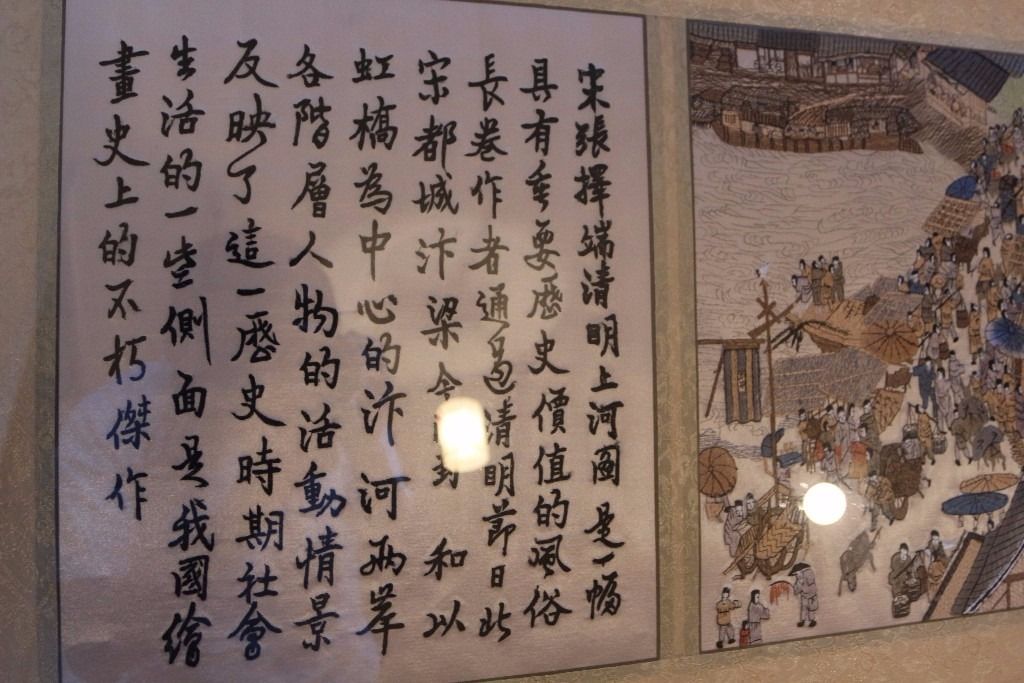 宋張擇端清明上河圖是一幅
具有重要歷史價值的風俗
長卷作者通過清明節日北
宋都城汴梁今封和以
虹橋為中心的汴河兩岸
各階層人物的活動情景
反映了這一歷史時期社會
生活的一些側面是我國繪
畫史上的不朽傑作